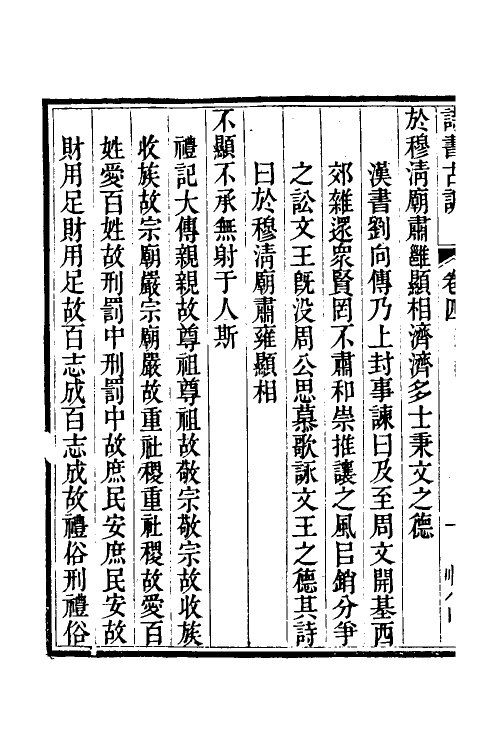 卷四
於穆淸廟肅雝顯相濟濟多士秉文之德
漢書劉向傳乃上封事諫曰及至周文開基西
郊雜遝衆賢罔不肅和崇推讓之風㠯銷分爭
之訟文王旣没周公思慕歌詠文王之德其詩
曰於穆淸廟肅雍顯相
不顯不承無射于人斯
禮記大傳親親故尊祖尊祖故敬宗敬宗故收族
收族故宗廟嚴宗廟嚴故重社稷重社稷故愛百
姓愛百姓故刑罰中刑罰中故庶民安庶民安故
財用足財用足故百志成百志成故禮俗刑禮俗